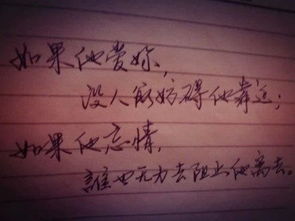 如果他爱妳,
没人能妨碍他靠近;
如果他忘情,
誰也无力去阻止他离去。